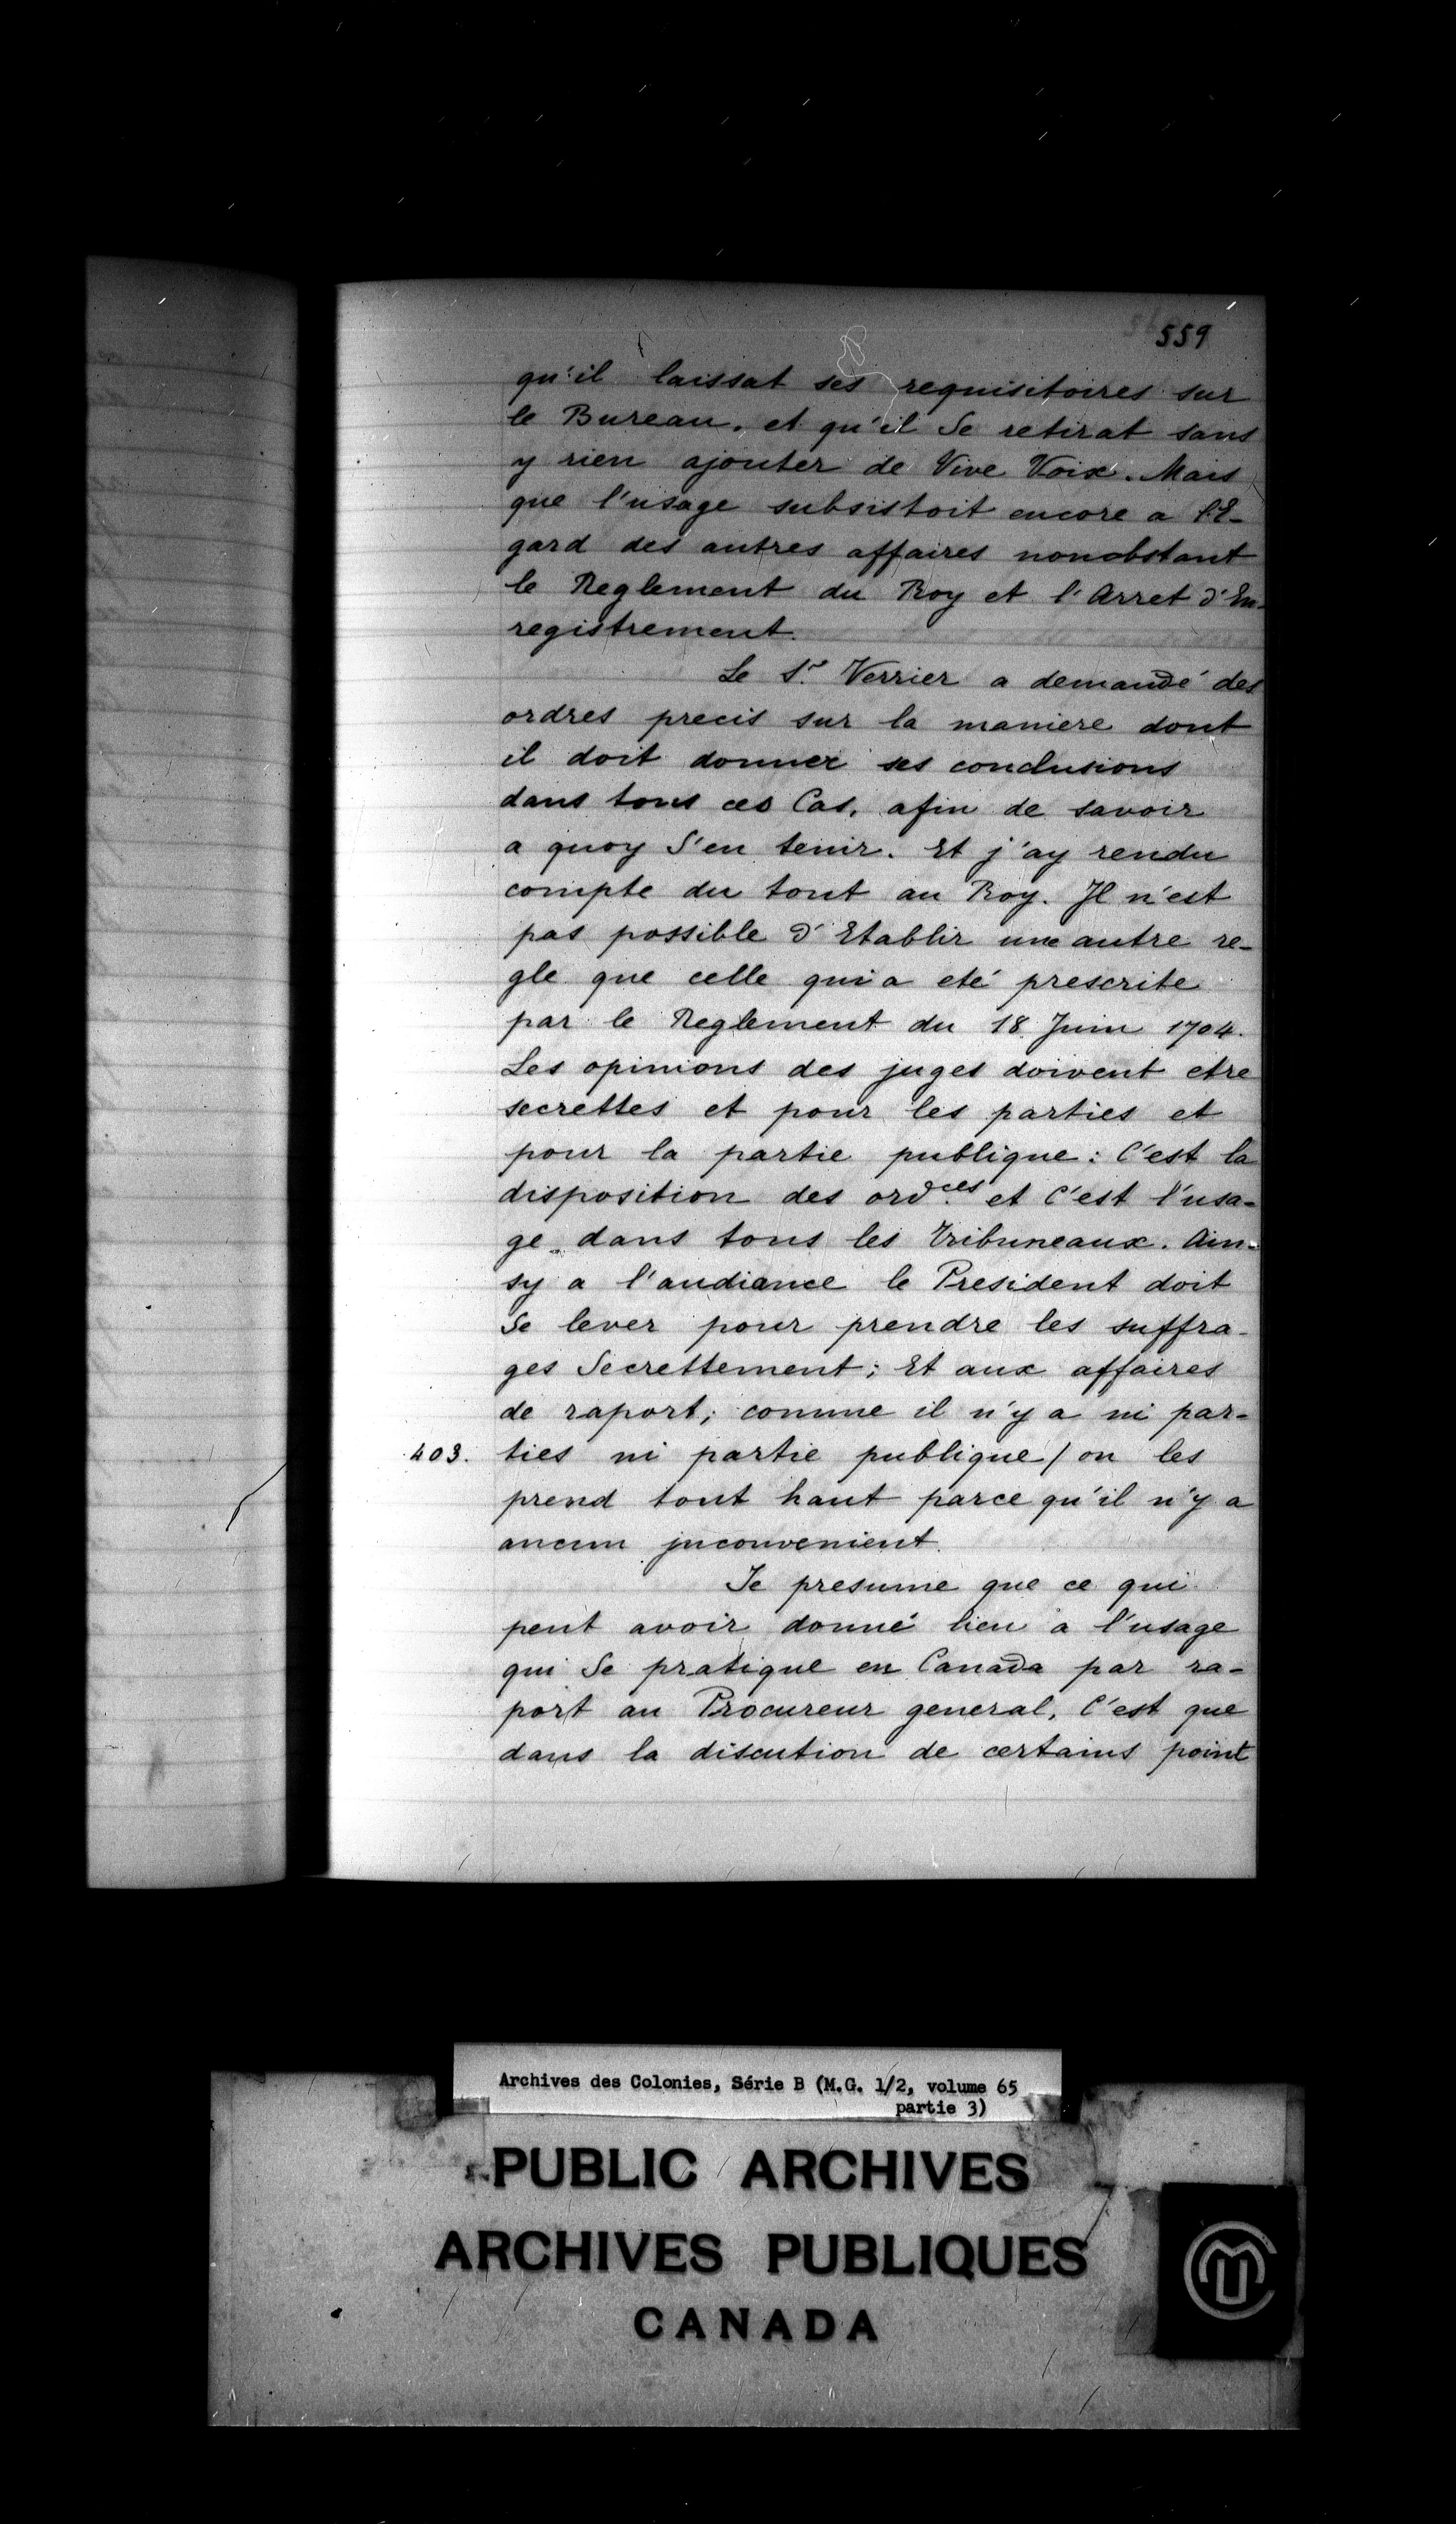 559
qu'il laissat ses requisitoires sur
le Bureau. et qu'il Se retirat sans
y rien ajouter de Vive Voix. Mais
que l'usage subsistoit encore a l'E-
gard des autres affaires nonobstant
le Reglement du Roy et l'Arret d'En-
registrement.
Le Sr. Verrier a demandé des
ordres precis sur la maniere dont
il doit donner ses conclusions
dans tous ces Cas, afin de savoir
a quoy S'en tenir. Et j'ay rendu
compte du tout au Roy. Il n'est
pas possible d'Etablir une autre re-
gle que celle qui a eté prescrite
par le Reglement du 18 Juin 1704.
Les opinions des juges doivent etre
secrettes et pour les parties et
pour la partie publique: C'est la
disposition des ord.ces et C'est l'usa-
ge dans tous les tribuneaux. Ain-
sy a l'audiance le President doit
Se lever pour prendre les suffra-
ges Secrettement; Et aux affaires
de raport; comme il n'y a ni par-
403. ties ni partie publique / on les
prend tout haut parce qu'il n'y a
aucun jnconvenient.
Je presume que ce qui
peut avoir donné lieu a l'usage
qui Se pratique en Canada par ra-
port au Procureur general, C'est que
dans la discution de certains point
Archives des Colonies, Série B (M.G. 1/2, volume 65
partie 3)
PUBLIC ARCHIVES
ARCHIVES PUBLIQUES
CANADA